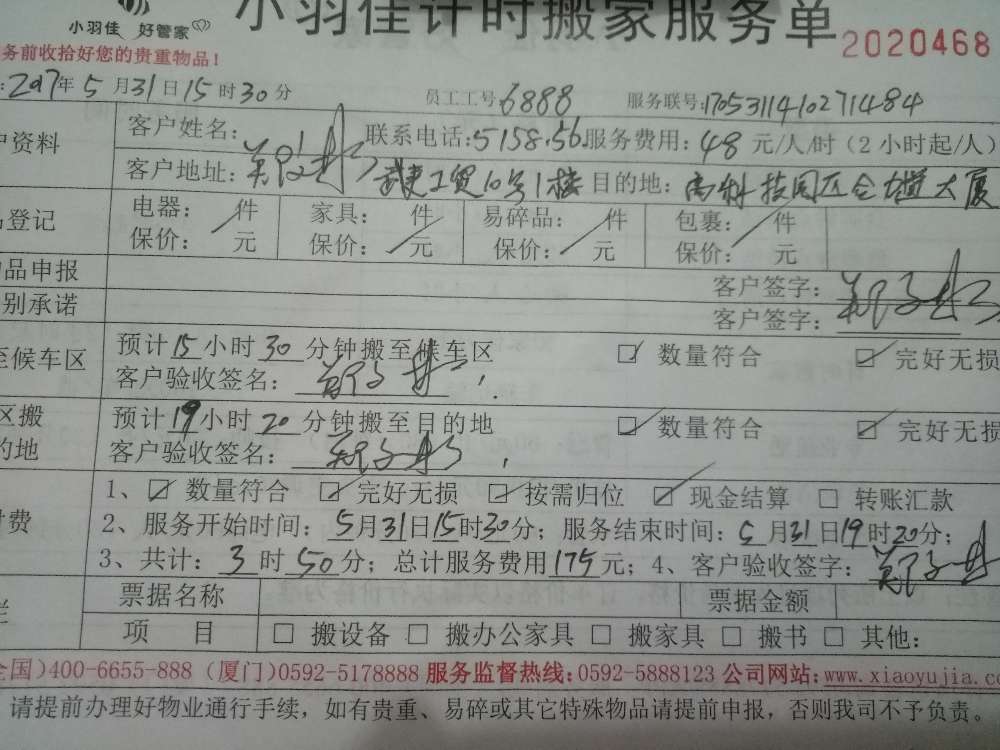 小羽佳 好管家
小羽佳计时搬家服务单 2020468
务前收拾好您的贵重物品！
:2017年5月31日15时30分 员工工号6888 服务联号:1705311410271484
户资料 客户姓名： 联系电话:5158.56 服务费用：48元/人/时（2小时起/人）
客户地址： 工贸10号1楼 目的地：高科技园 大厦
登记 电器： 件 家具： 件 易碎品： 件 包裹： 件
保价： 元 保价： 元 保价： 元 保价： 元
品申报 客户签字：
别承诺 客户签字：
至候车区 预计15小时30分钟搬至候车区 ☑ 数量符合 ☑ 完好无损
客户验收签名：
区搬 预计19小时20分钟搬至目的地 ☑ 数量符合 ☑ 完好无损
的地 客户验收签名：
1、☑ 数量符合 ☑ 完好无损 ☑ 按需归位 ☑ 现金结算 □ 转账汇款
付费 2、服务开始时间：5月31日15时30分；服务结束时间：5月31日19时20分；
3、共计：3时50分；总计服务费用175元；4、客户验收签字：
栏 票据名称 票据金额
项 目 □ 搬设备 □ 搬办公家具 □ 搬家具 □ 搬书 □ 其他：
全国）400-6655-888（厦门）0592-5178888 服务监督热线：0592-5888123 公司网站：www.xiaoyujia.co
请提前办理好物业通行手续，如有贵重、易碎或其它特殊物品请提前申报，否则我司不予负责。